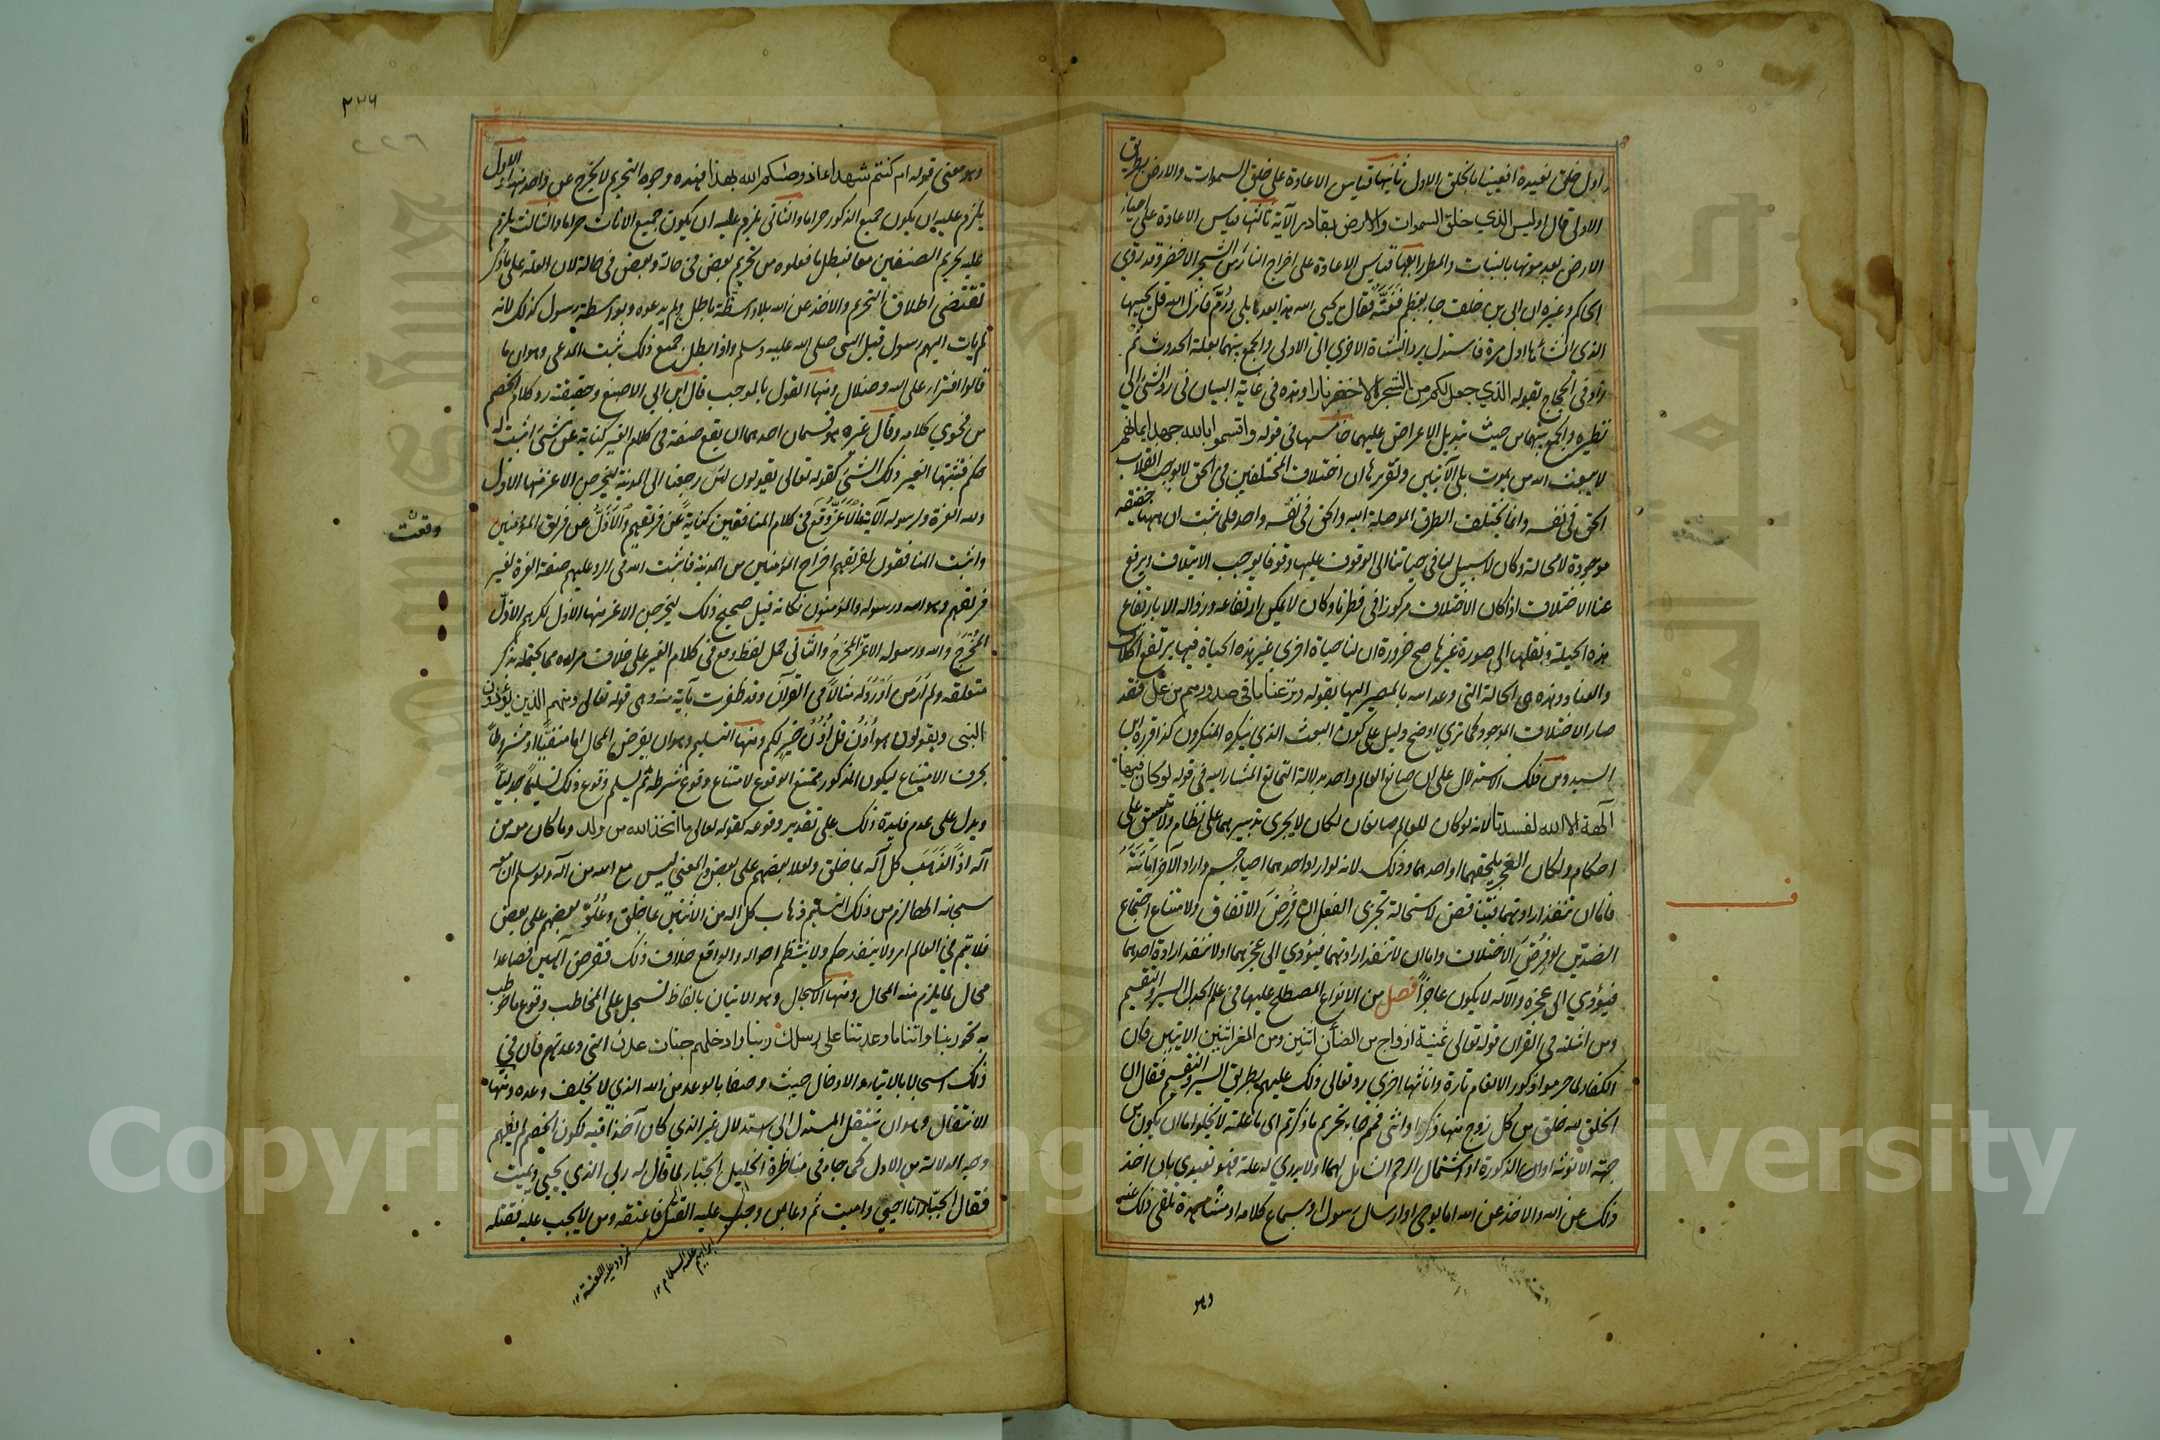 اول خلق نعيده افعيينا بالخلق الاول ثانيها قياس الاعادة على خلق السموات والارض بطريق
الاولى قال اوليس الذي خلق السموات والارض بقادر الآية ثالثها قياس الاعادة على احياء
الارض بعد موتها بالنبات والمطر رابعها قياس الاعادة على اخراج النار من الشجر الاخضر وقد روى
الحاكم وغيره ان ابي بن خلف جاء بعظم ففته فقال يحيى الله هذا بعد ما بلى ورم فانزل الله قل يحييها
الذي انشأها اول مرة فاستدل برد النشاة الاخرى الى الاولى والجمع بينهما بعلة الحدوث ثم
زاد في الحجاج بقوله الذي جعل لكم من الشجر الاخضر نارا وهذه في غاية البيان في رد الشئ الى
نظيره والجمع بينهما من حيث تبديل الاعراض عليهما خامسها في قوله واقسموا بالله جهد ايمانهم
لا يبعث الله من يموت بلى الآيتين وتقريرها ان اختلاف المختلفين في الحق لا يوجب انقلاب
الحق في نفسه وانما يختلف الطرق الموصلة اليه والحق في نفسه واحد فلما ثبت ان ههنا حقيقة
موجودة لا محالة وكان لا سبيل لنا في حياتنا الى الوقوف عليها وقوفا يوجب الايتلاف ويرفع
عنا الاختلاف اذ كان الاختلاف مركوزا في فطرنا وكان لا يمكن ارتفاعه وزواله الا بارتفاع
هذه الجبلة ونقلها الى صورة غيرها صح ضرورة ان لنا حياة اخرى غير هذه الحياة فيها يرتفع الخلاف
والعناد وهذه هي الحالة التي وعد الله بالمصير اليها بقوله ونزعنا ما في صدورهم من غل فقد
صار الاختلاف الموجود كما ترى اوضح دليل على كون البعث الذي ينكره المنكرون كذا قرره ابن
السيد ومن ذلك الاستدلال على ان صانع العالم واحد بدلالة التمانع المشار اليه في قوله لو كان فيهما
آلهة الا الله لفسدتا لانه لو كان للعالم صانعان لكان لا يجرى تدبيرهما على نظام ولا يتسق على
احكام ولكان العجز يلحقهما او احدهما وذلك لانه لو اراد احدهما احياء جسم واراد الآخر اماتته
فاما ان تنفذ ارادتهما فيتناقض لاستحالة تجزى الفعل ان فرض الاتفاق ولامتناع اجتماع
الضدين ان فرض الاختلاف واما ان لا تنفذ ارادتهما فيؤدي الى عجزهما او لا تنفذ ارادة احدهما
فيؤدي الى عجزه والاله لا يكون عاجزا فصل من الانواع المصطلح عليها في علم الجدل السبر والتقسيم
ومن امثلته في القران قوله تعالى ثمنية ازواج من الضأن اثنين ومن المعز اثنين الايتين فان
الكفار لما حرموا ذكور الانعام تارة واناثها اخرى رد تعالى ذلك عليهم بطريق السبر والتقسيم فقال ان
الخلق لله خلق من كل زوج منها ذكرا وانثى فمم جاء تحريم ما ذكرتم اى ما علته لا يخلوا اما ان يكون من
جهة الانوثة او الذكورة او اشتمال الرحم الشامل لهما اولا يدري له علة فهو تعبدي بان اخذ
ذلك عن الله والاخذ عن الله اما بوحي او ارسال رسول او سماع كلامه او مشاهدة تلقي ذلك عنه
وهو
٢٢٦
وهو معنى قوله ام كنتم شهداء اذ وصاكم الله بهذا فهذه وجوه التحريم لا يخرج عن واحد منها الاول
يلزم عليه ان يكون جميع الذكور حراما والثاني يلزم عليه ان يكون جميع الاناث حراما والثالث يلزم
عليه تحريم الصنفين معا فبطل ما فعلوه من تحريم بعض في حالة وبعض في حالة لان العلة على ما ذكر
تقتضي اطلاق التحريم والاخذ عن الله بلا واسطة باطل ولم يدعوه وبواسطة رسول كذلك لانه
لم يات اليهم رسول قبل النبي صلى الله عليه وسلم واذا بطل جميع ذلك ثبت المدعى وهو ان ما
قالوا افتراء على الله وضلال ومنها القول بالموجب قال ابن ابي الاصبع وحقيقته رد كلام الخصم
من فحوى كلامه وقال غيره هو قسمان احدهما ان يقع صفة في كلام الغير كناية عن شئ اثبت له
حكم فتثبتها لغير ذلك الشئ كقوله تعالى يقولون لئن رجعنا الى المدينة ليخرجن الاعز منها الاذل
ولله العزة ولرسوله الآية فالاعز وقع في كلام المنافقين كناية عن فريقهم والاذل عن فريق المؤمنين
واثبت المنافقون لفريقهم اخراج المؤمنين من المدينة فاثبت الله في الرد عليهم صفة العزة لغير
فريقهم وهو الله ورسوله والمؤمنون فكانه قيل صحيح ذلك ليخرجن الاعز منها الاذل لكن هم الاذل
المخرج والله ورسوله الاعز المخرج والثاني حمل لفظ وقع في كلام الغير على خلاف مراده مما يحتمله بذكر
متعلقه ولم ار من اورد له مثالا في القران وقد ظفرت بآية منه وهي قوله تعالى ومنهم الذين يؤذون
النبي ويقولون هو اذن قل اذن خير لكم ومنها التسليم وهو ان يفرض المحال اما منفيا او مشروطا
بحرف الامتناع ليكون المذكور ممتنع الوقوع لامتناع وقوع شرطه ثم يسلم وقوع ذلك تسليما جدليا
ويدل على عدم فايدة ذلك على تقدير وقوعه كقوله تعالى ما اتخذ الله من ولد وما كان معه من
اله اذا لذهب كل اله بما خلق ولعلا بعضهم على بعض المعنى ليس مع الله من اله ولو سلم ان معه
سبحانه الها لزم من ذلك التسليم ذهاب كل اله من الاثنين بما خلق وعلو بعضهم على بعض
فلا يتم في العالم امر ولا ينفذ حكم ولا ينتظم احواله والواقع خلاف ذلك ففرض الهين فصاعدا
محال لما يلزم منه المحال ومنها الاسجال وهو الاتيان بالفاظ تسجل على المخاطب وقوع ما خوطب
به نحو ربنا واتنا ما وعدتنا على رسلك ربنا وادخلهم جنات عدن التي وعدتهم فان في
ذلك اسجالا بالايتاء والادخال حيث وصفا بالوعد من الله الذي لا يخلف وعده ومنها
الانتقال وهو ان ينتقل المستدل الى استدلال غير الذي كان آخذا فيه لكون الخصم لم يفهم
وجه الدلالة من الاول كما جاء في مناظرة الخليل الجبار لما قال له ربي الذي يحيي ويميت
فقال الجبار انا احيي واميت ثم دعا بمن وجب عليه القتل فاعتقه ومن لا يجب عليه فقتله
وقعت
ابراهيم عليه السلام ١٢
نمرود عليه اللعنة ١٢
Copyright © King Saud University